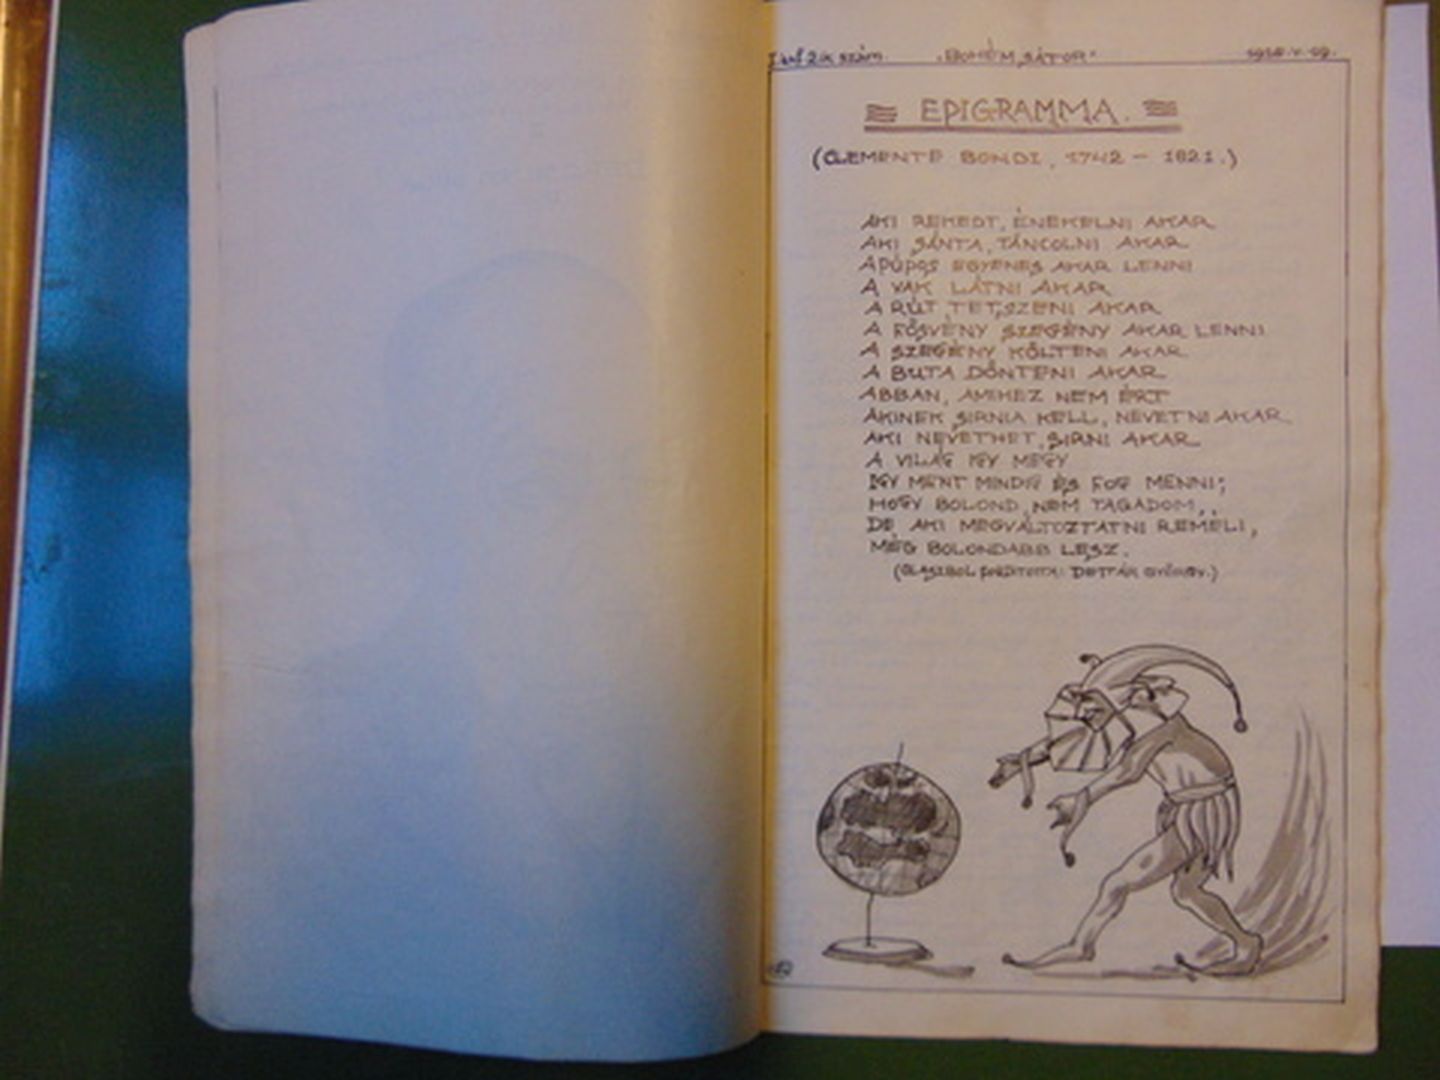 2.ik szám. „BOHÉM SÁTOR"
EPIGRAMMA.
(CLEMENTE BONDI, 1742 - 1821.)
AKI REKEDT, ÉNEKELNI AKAR
AKI SÁNTA, TÁNCOLNI AKAR
A PÚPOS EGYENES AKAR LENNI
A VAK LÁTNI AKAR
A RÚT TETSZENI AKAR
A FÖSVÉNY SZEGÉNY AKAR LENNI
A SZEGÉNY KÖLTENI AKAR
A BUTA DÖNTENI AKAR
ABBAN, AMIHEZ NEM ÉRT
AKINEK SIRNIA KELL, NEVETNI AKAR
AKI NEVETHET, SIRNI AKAR
A VILÁG IGY MEGY
IGY MENT MINDIG ÉS FOG MENNI;
HOGY BOLOND, NEM TAGADOM,
DE AKI MEGVÁLTOZTATNI REMÉLI,
MÉG BOLONDABB LESZ.
(OLASZBOL FORDITOTTA: DETTÁR GYÖRGY.)